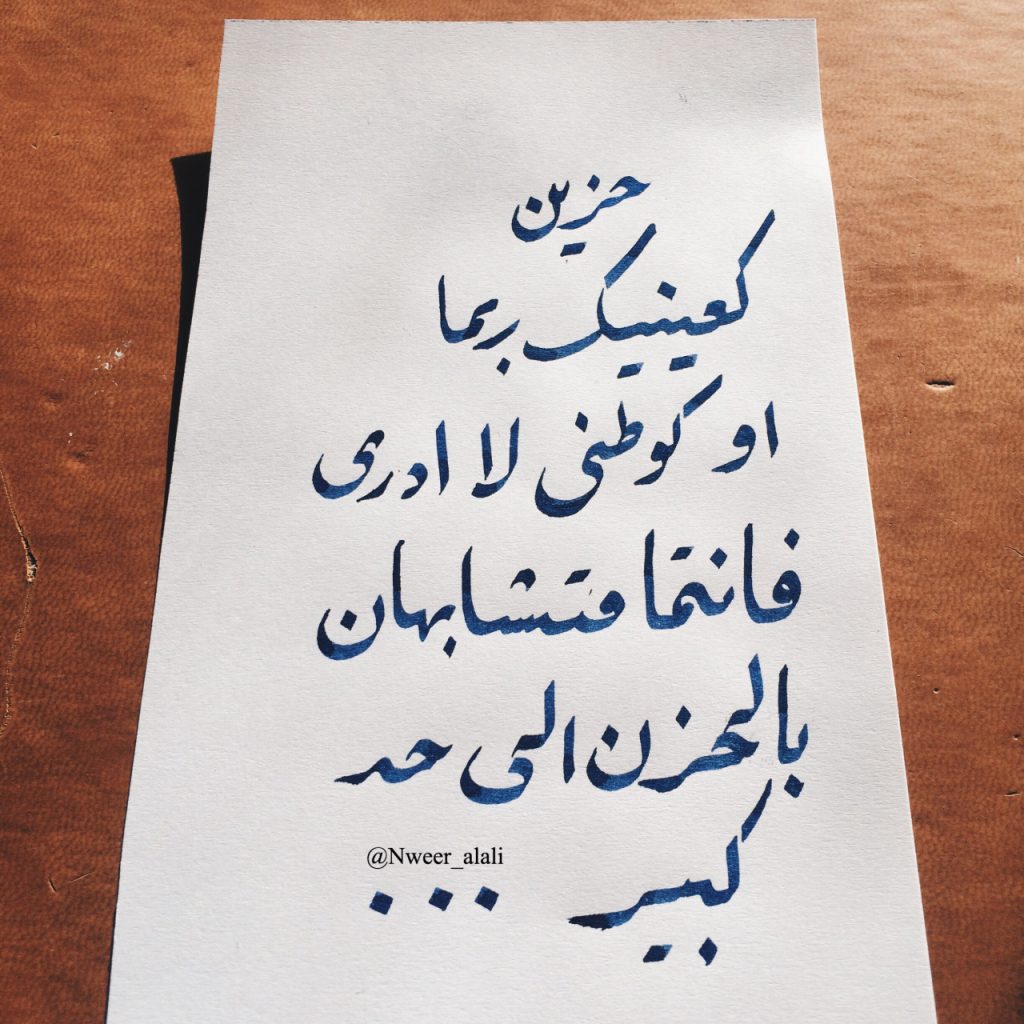 حزين
كعينيك ربما
او كوطني لا ادرى
فانتما متشابهان
بالحزن الى حد
كبير ...
@Nweer_alali